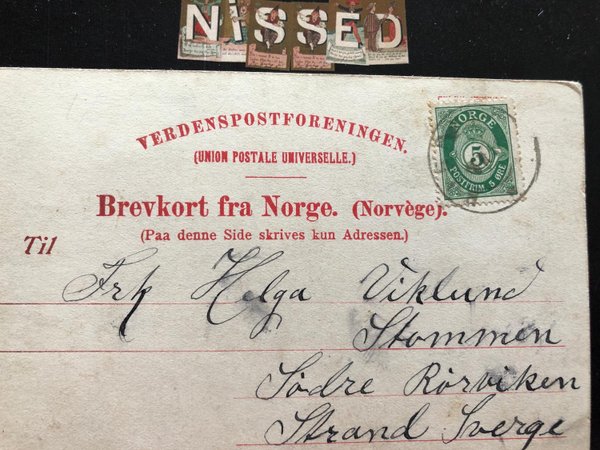 NISSED
VERDENSPOSTFORENINGEN.
(UNION POSTALE UNIVERSELLE.)
NORGE
5
POSTFRIM. 5 ØRE
Brevkort fra Norge. (Norvège).
(Paa denne Side skrives kun Adressen.)
Til
Frk Helga Viklund
Stommen
Södre Rörviken
Strand Sverge